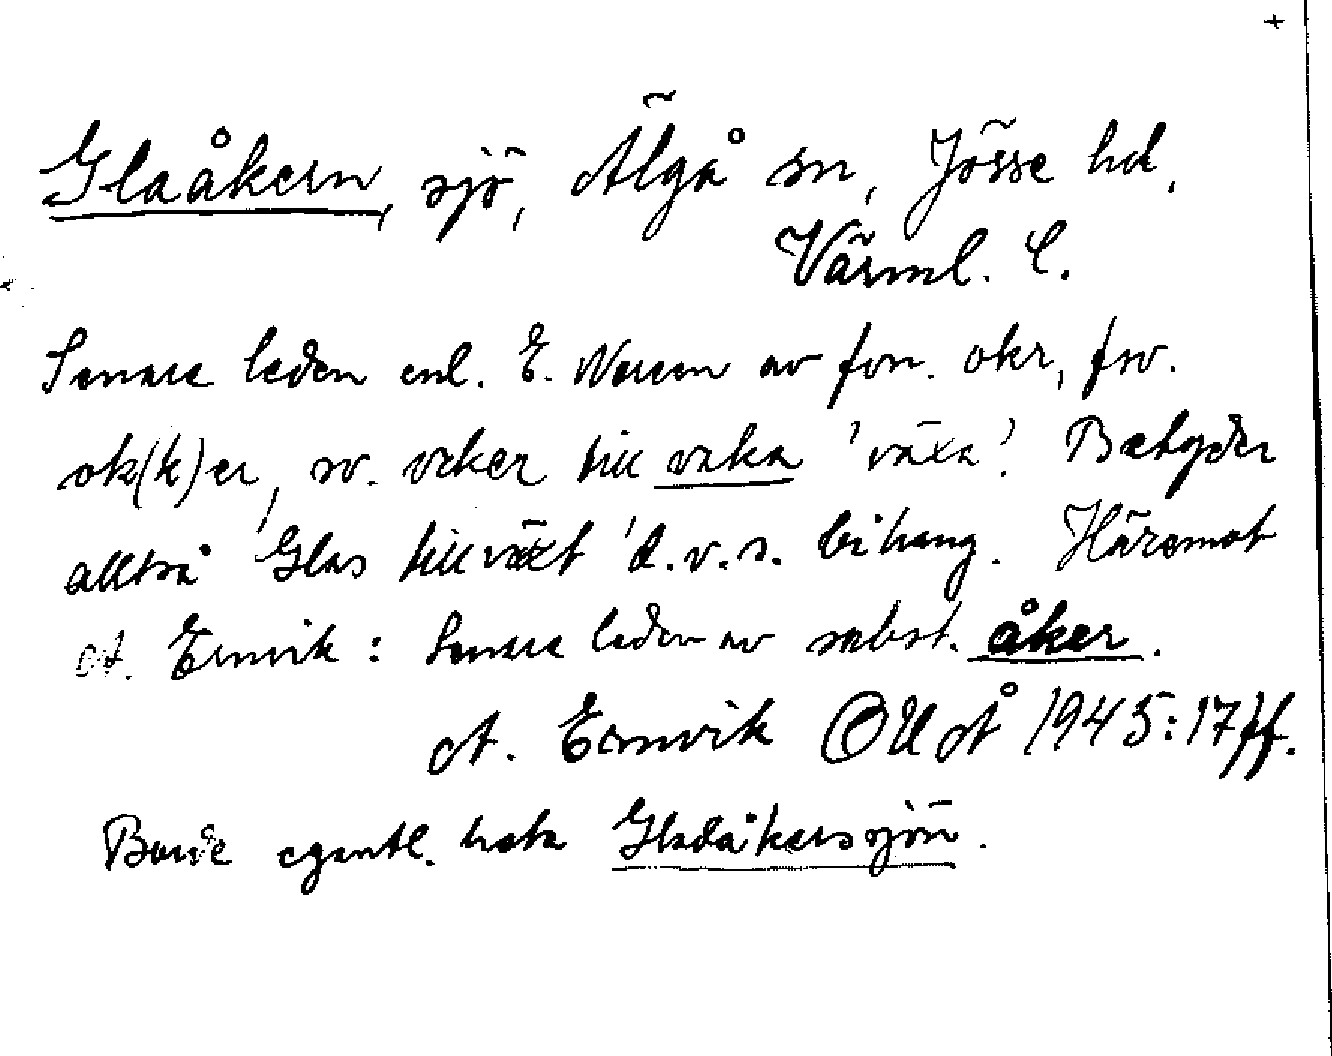 +
Glaåkern, sjö, Älgå sn, Jösse hd,
Värml. l.
Senare leden enl. E. Noreen av fvn. okr, fsv.
ok(k)er, sv. ocker till vaka 'växa'. Betyder
alltså 'Glas tillväxt' d.v.s. bihang. Häremot
A. Ernvik: Senare leden av subst. åker.
A. Ernvik OUÅ 1945:17ff.
Borde egentl. heta Gladåkerssjön.